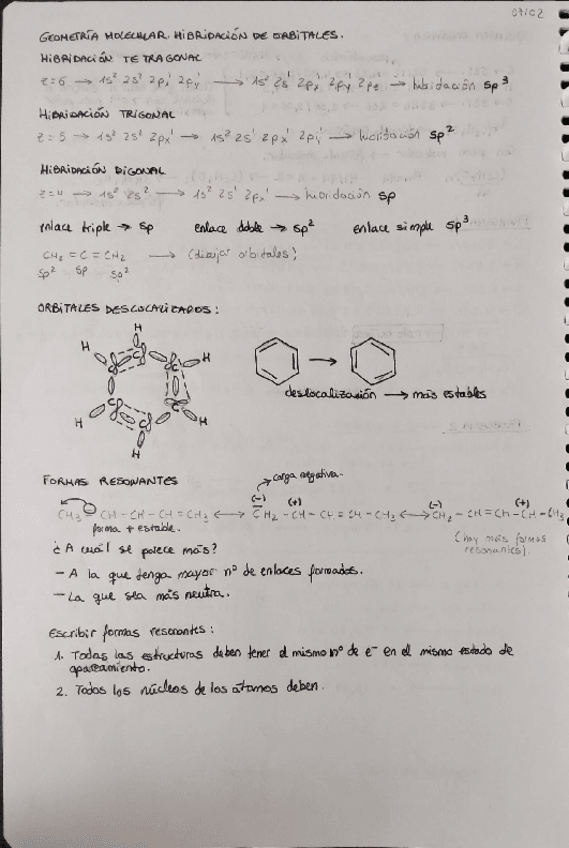 07/02
GEOMETRÍA MOLECULAR. HIBRIDACIÓN DE ORBITALES.
HIBRIDACIÓN TETRAGONAL
z=6 → 1s² 2s² 2px¹ 2py¹ → 1s² 2s¹ 2px¹ 2py 2pz → hibridación sp³
HIBRIDACIÓN TRIGONAL
z=5 → 1s² 2s² 2px¹ → 1s² 2s¹ 2px¹ 2py¹ → hibridación sp²
HIBRIDACIÓN DIGONAL
z=4 → 1s² 2s² → 1s² 2s¹ 2px¹ → hibridación sp
enlace triple → sp enlace doble → sp² enlace simple sp³
CH₂ = C = CH₂ → (dibujar orbitales)
sp² sp sp²
ORBITALES DESLOCALIZADOS:
H
H C C H
C C
H C C H
H
→
deslocalización → más estables
FORMAS RESONANTES
→ carga negativa.
(-) (+) (-) (+)
CH₂ - CH - CH = CH - CH₂ ↔ CH₂ - CH = CH - CH - CH₃
forma + estable.
(hay más formas
resonantes).
¿A cuál se parece más?
- A la que tenga mayor nº de enlaces formados.
- La que sea más neutra.
Escribir formas resonantes:
1. Todas las estructuras deben tener el mismo nº de e⁻ en el mismo estado de
apareamiento.
2. Todos los núcleos de los átomos deben.